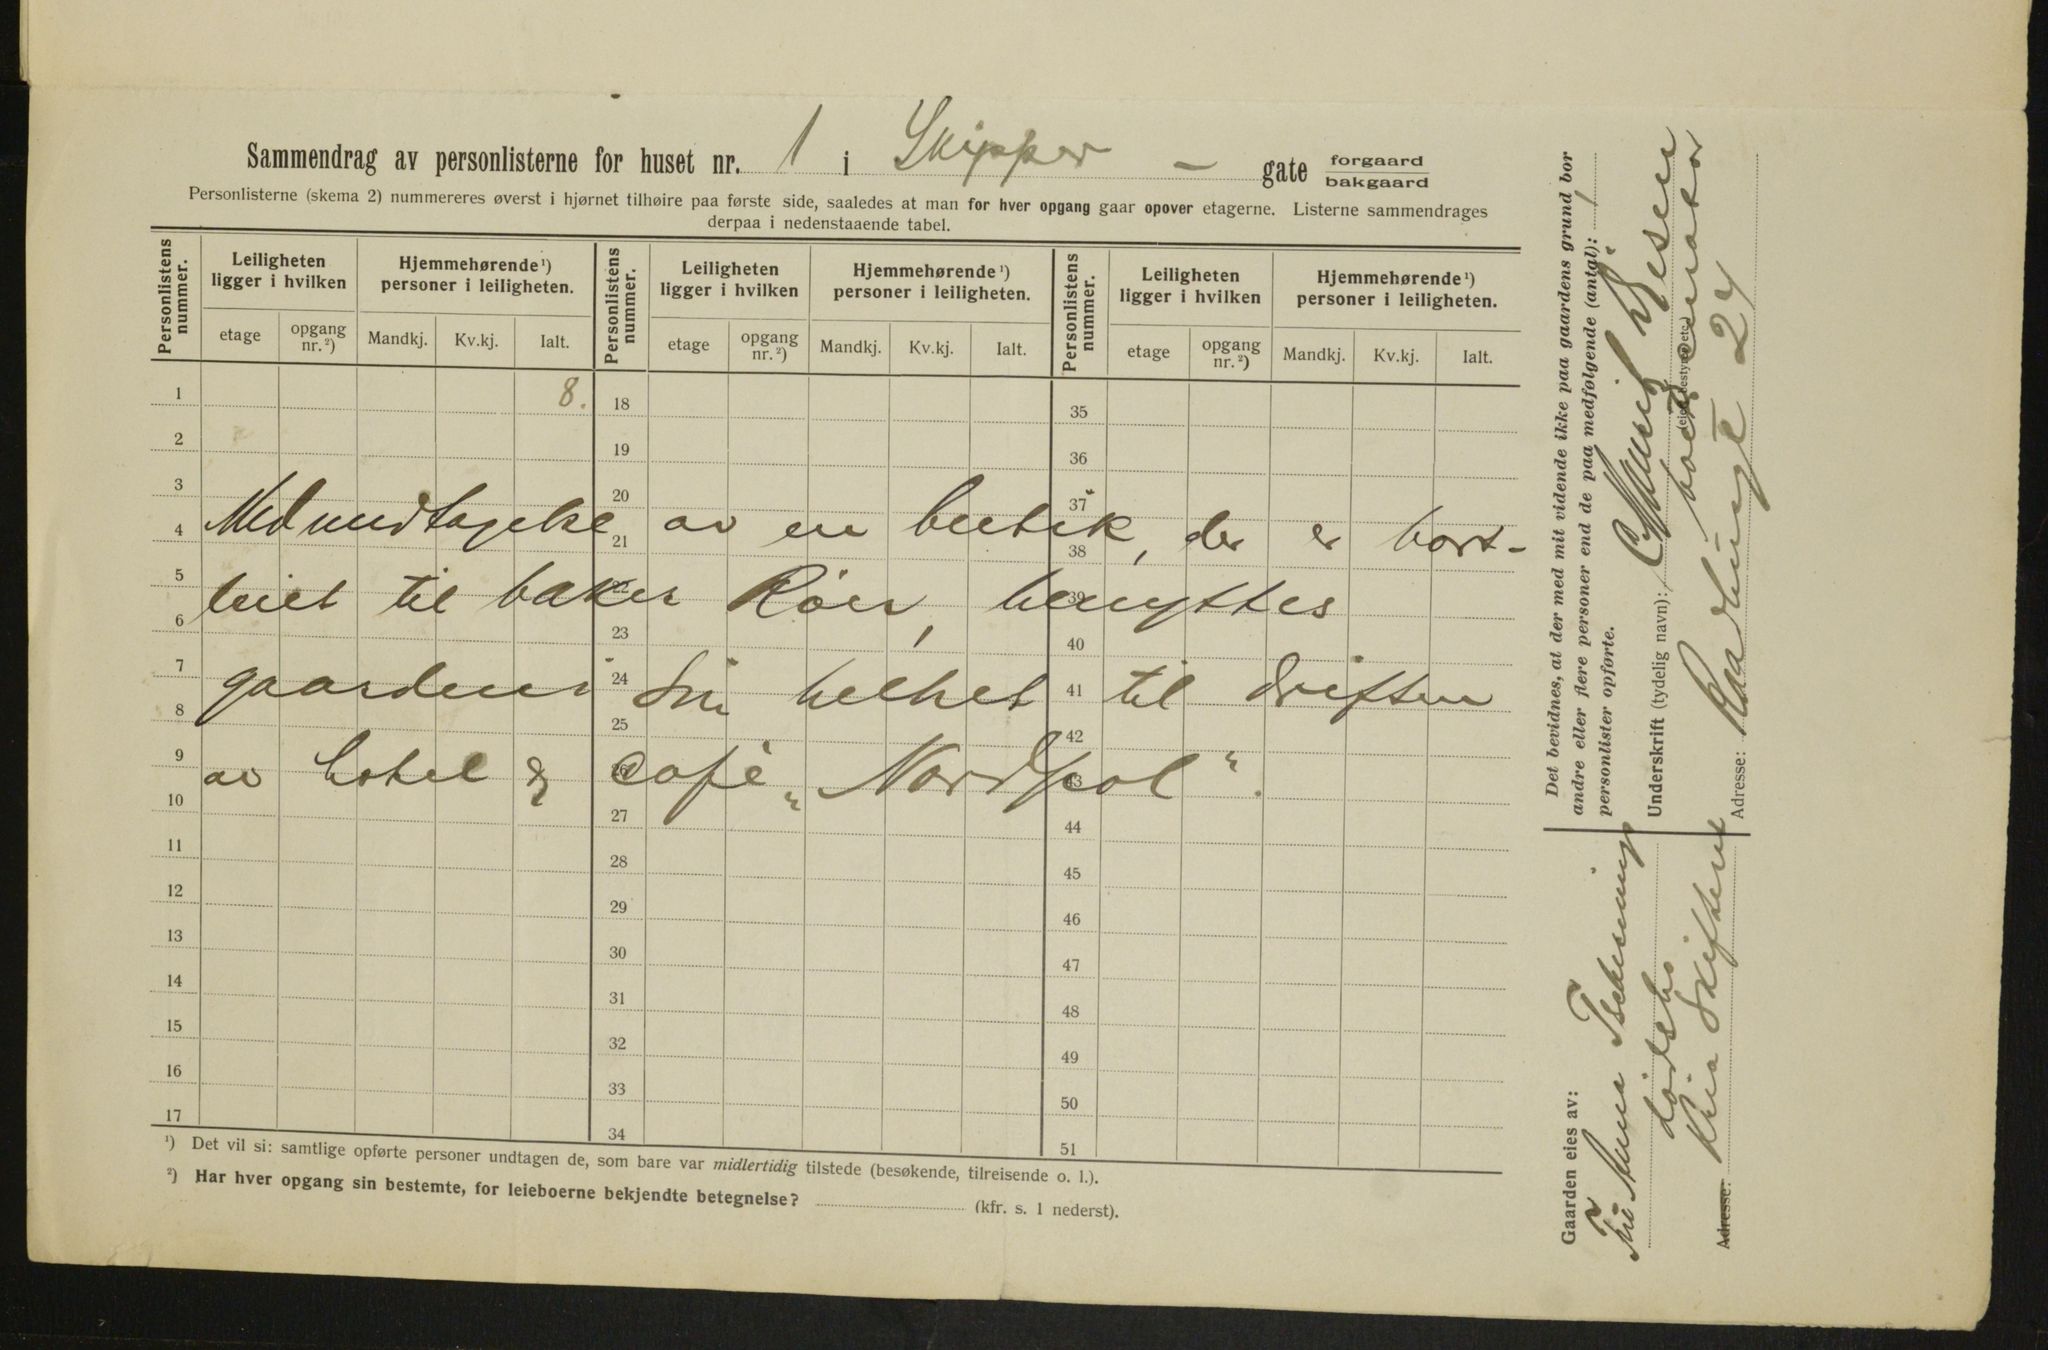 Sammendrag av personlisterne for huset nr. 1 i Skipper - gate forgaard
bakgaard
Personlisterne (skema 2) nummereres øverst i hjørnet tilhøire paa første side, saaledes at man for hver opgang gaar opover etagerne. Listerne sammendrages
derpaa i nedenstaaende tabel.
Personlistens nummer. Leiligheten ligger i hvilken Hjemmehørende ¹) personer i leiligheten. Personlistens nummer. Leiligheten ligger i hvilken Hjemmehørende ¹) personer i leiligheten. Personlistens nummer. Leiligheten ligger i hvilken Hjemmehørende ¹) personer i leiligheten.
etage opgang nr. ²) Mandkj. Kv.kj. Ialt. etage opgang nr. ²) Mandkj. Kv.kj. Ialt. etage opgang nr. ²) Mandkj. Kv.kj. Ialt.
1 8. 18 35
2 19 36
3 20 37
4 21 38
5 22 39
6 23 40
7 24 41
8 25 42
9 26 43
10 27 44
11 28 45
12 29 46
13 30 47
14 31 48
15 32 49
16 33 50
17 34 51
Med undtagelse av en butik, der er bort-
leiet til baker Röer, benyttes
gaarden i sin helhet til driften
av hotel & café „Nordpol".
¹) Det vil si: samtlige opførte personer undtagen de, som bare var midlertidig tilstede (besøkende, tilreisende o. l.).
²) Har hver opgang sin bestemte, for leieboerne bekjendte betegnelse? (kfr. s. 1 nederst).
Det bevidnes, at der med mit vidende ikke paa gaardens grund bor
andre eller flere personer end de paa medfølgende (antal): 1
personlister opførte.
Underskrift (tydelig navn):
(eier, bestyrer etc.)
Adresse: 24
Gaarden eies av:
Anna
dödsbo
Adresse: Kria Skifteret